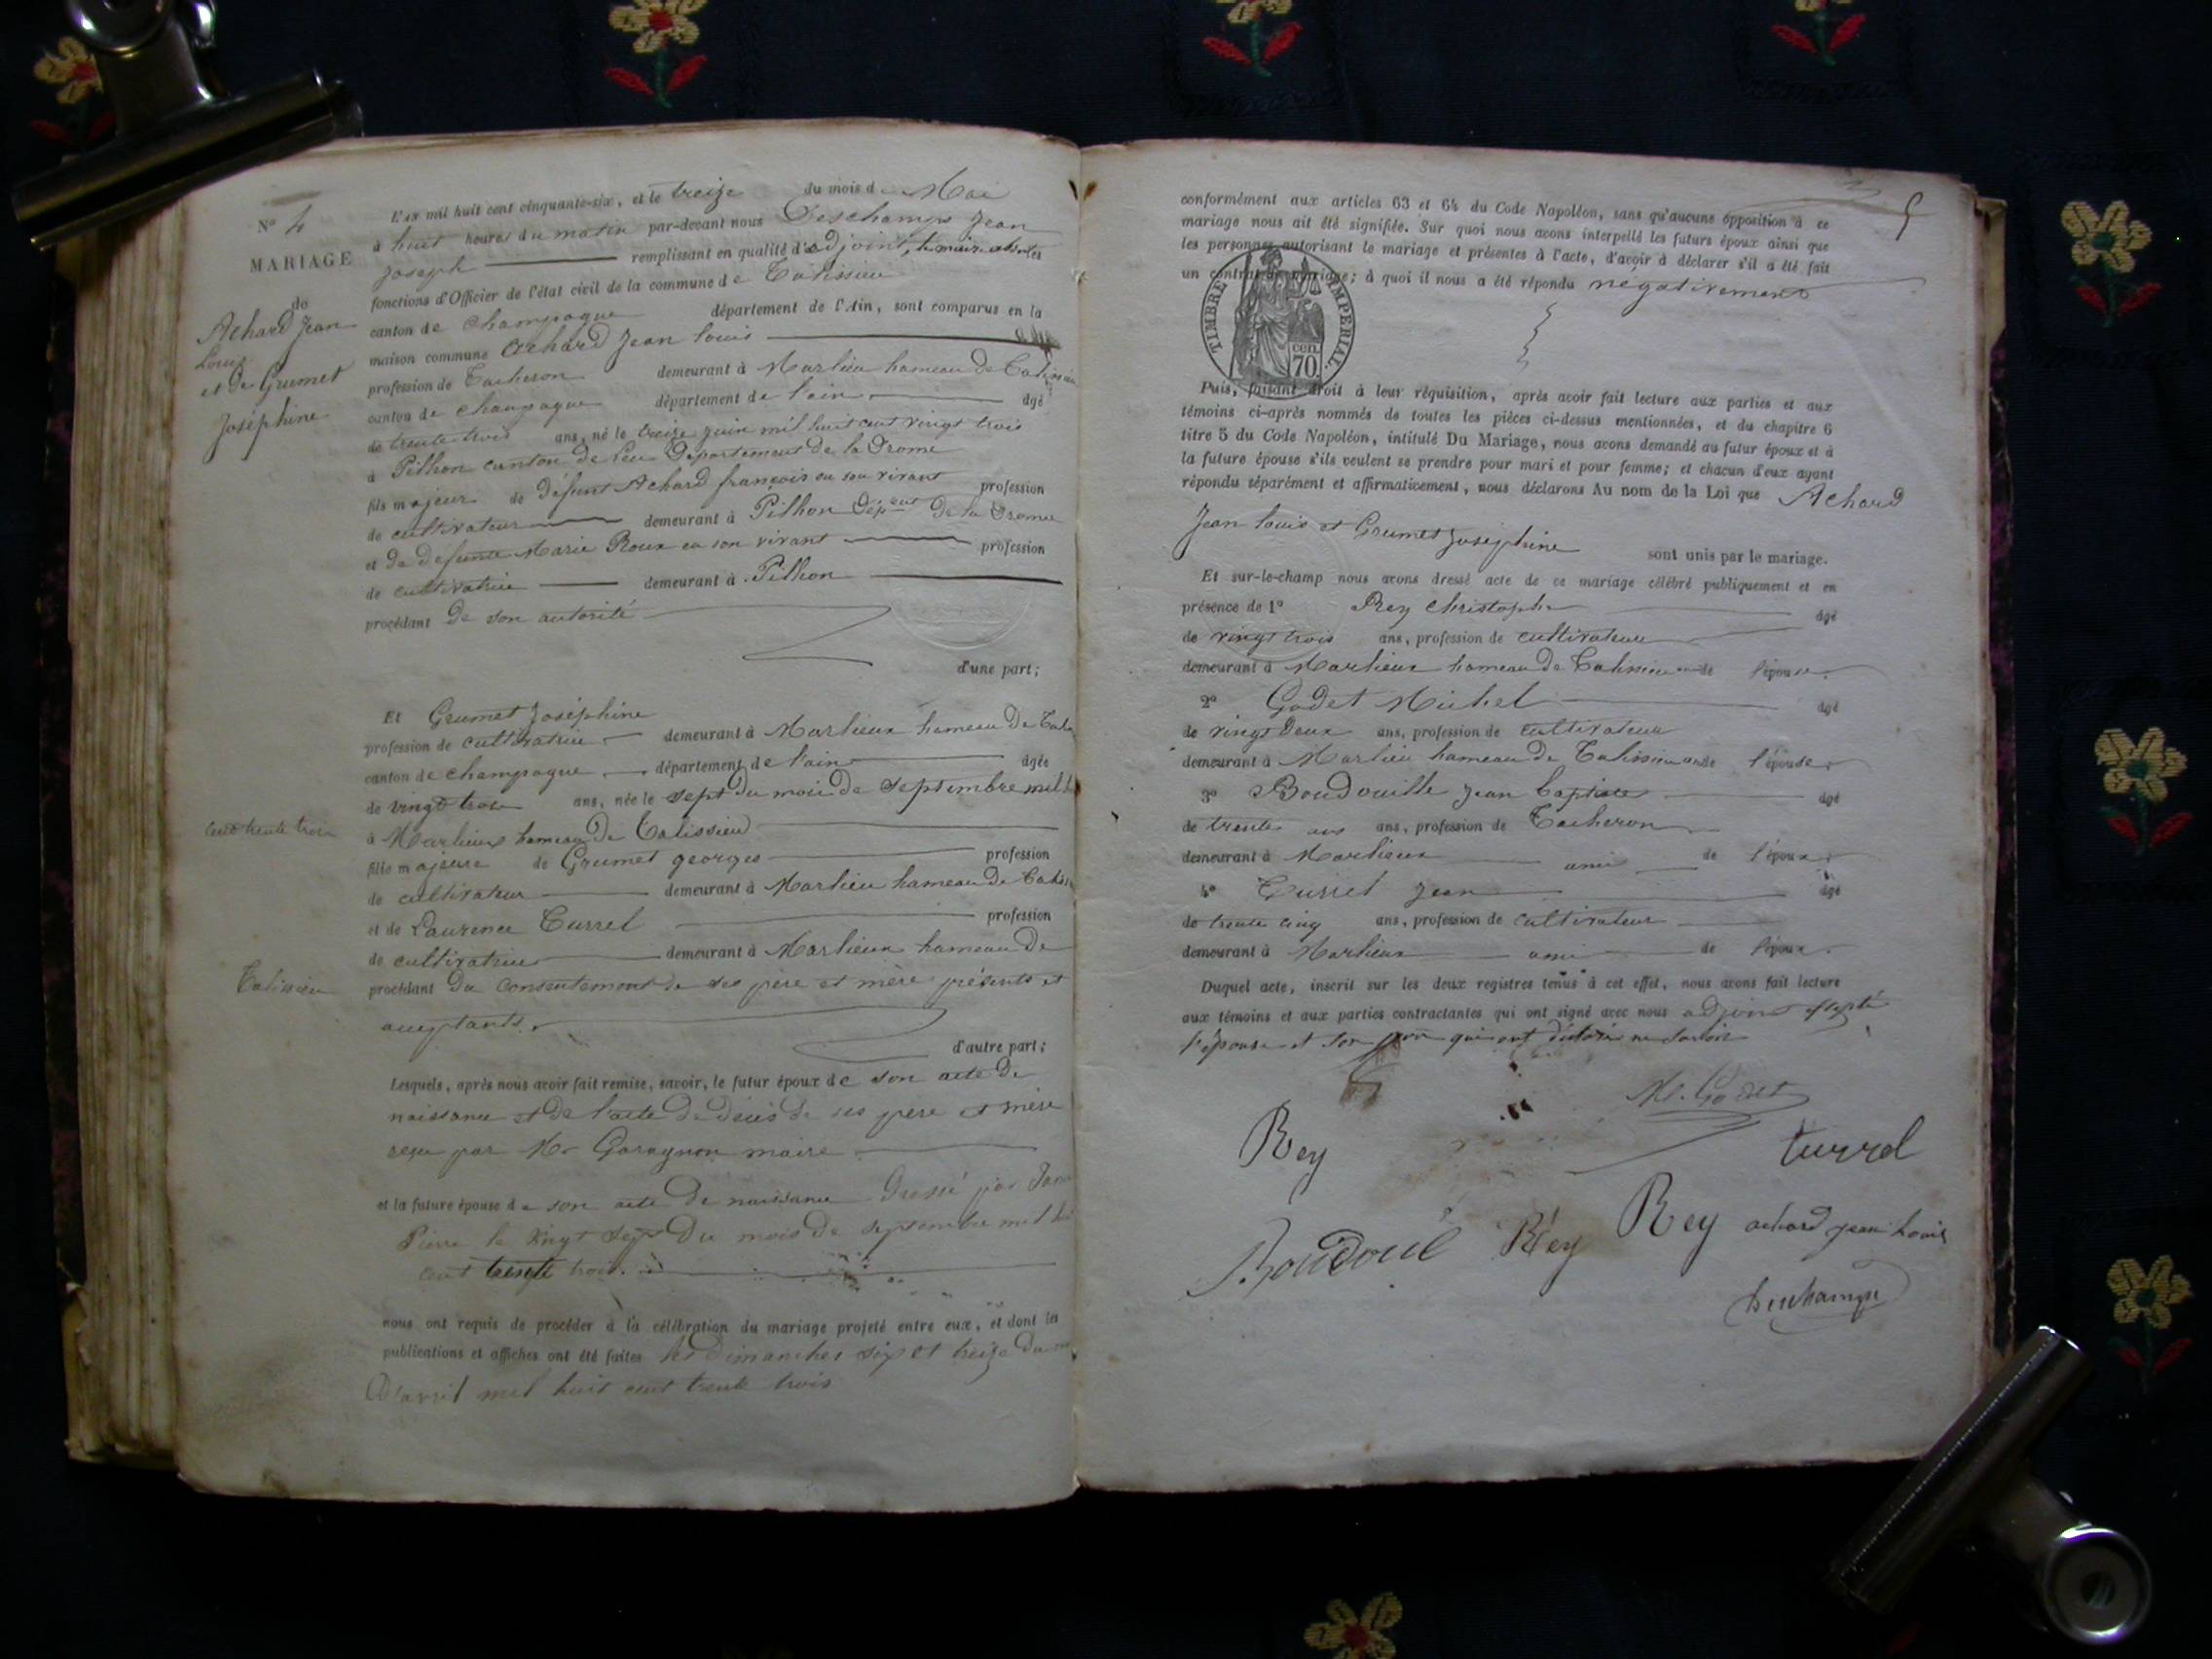 Nº 4
MARIAGE
de
Achard Jean
Louis
et de Grumet
Joséphine
L'an mil huit cent cinquante-six, et le treize du mois d e Mai
à huit heures du matin par-devant nous Deschamps Jean
Joseph remplissant en qualité d'adjoint, le maire absent les
fonctions d'Officier de l'état civil de la commune de Talissieu
canton de Champagne département de l'Ain, sont comparus en la
maison commune Achard Jean Louis
profession de Tacheron demeurant à Marlieu hameau de Talissieu
canton de Champagne département de l'ain âgé
de trente trois ans, né le treize juin mil huit cent vingt trois
à Pilhon canton de Luc Département de la Drome
fils majeur de défunt Achard françois en son vivant profession
de cultivateur demeurant à Pilhon Dépent de la Drome
et de defunte Marie Roux en son vivant profession
de cultivatrice demeurant à Pilhon
procédant de son autorité
d'une part;
Et Grumet Joséphine
profession de cultivatrice demeurant à Marlieux hameau de Talis
canton de Champagne département de l'ain âgée
de vingt trois ans, née le sept du mois de septembre mil h
cent trente trois
à Marlieux hameau de Talissieu
fille majeure de Grumet georges profession
de cultivateur demeurant à Marlieu hameau de Talis
et de Laurence Turrel profession
de cultivatrice demeurant à Marlieux hameau de
Talissieu
procédant du consentement de ses père et mère présents et
acceptants
d'autre part;
Lesquels, après nous avoir fait remise, savoir, le futur époux de son acte de
naissance et de l'acte de décès de ses père et mère
reçu par Mr Garagnon maire
et la future épouse de son acte de naissance Dressé par
Pierre le vingt sept du mois de septembre mil h
cent trente trois.
nous ont requis de procéder à la célébration du mariage projeté entre eux, et dont les
publications et affiches ont été faites les Dimanches six et treize du
D'avril mil huit cent trente trois
5
conformément aux articles 63 et 64 du Code Napoléon, sans qu'aucune opposition à ce
mariage nous ait été signifiée. Sur quoi nous avons interpellé les futurs époux ainsi que
les personnes autorisant le mariage et présentes à l'acte, d'avoir à déclarer s'il a été fait
un contrat de mariage; à quoi il nous a été répondu négativement
TIMBRE IMPERIAL.
cen.
70.
Puis, faisant droit à leur réquisition, après avoir fait lecture aux parties et aux
témoins ci-après nommés de toutes les pièces ci-dessus mentionnées, et du chapitre 6
titre 5 du Code Napoléon, intitulé Du Mariage, nous avons demandé au futur époux et à
la future épouse s'ils veulent se prendre pour mari et pour femme; et chacun d'eux ayant
répondu séparément et affirmativement, nous déclarons Au nom de la Loi que Achard
Jean Louis et Grumet Joséphine sont unis par le mariage.
Et sur-le-champ nous avons dressé acte de ce mariage célébré publiquement et en
présence de 1º Rey Christophe âgé
de vingt trois ans, profession de cultivateur
demeurant à Marlieux hameau de Talissieu ami de l'épouse.
2º Godet Michel âgé
de vingt Deux ans, profession de cultivateur
demeurant à Marlieu hameau de Talissieu ami de l'épouse.
3º Boudouille Jean baptiste âgé
de trente ans ans, profession de Tacheron
demeurant à Marlieux ami de l'époux.
4º Turrel Jean âgé
de trente cinq ans, profession de cultivateur
demeurant à Marlieux ami de l'époux.
Duquel acte, inscrit sur les deux registres tenus à cet effet, nous avons fait lecture
aux témoins et aux parties contractantes qui ont signé avec nous adjoint excepté
l'épouse et son père qui ont déclaré ne savoir
M. Godet
Rey
turrel
Boudouil Rey Rey achard jean Louis
Deschamps